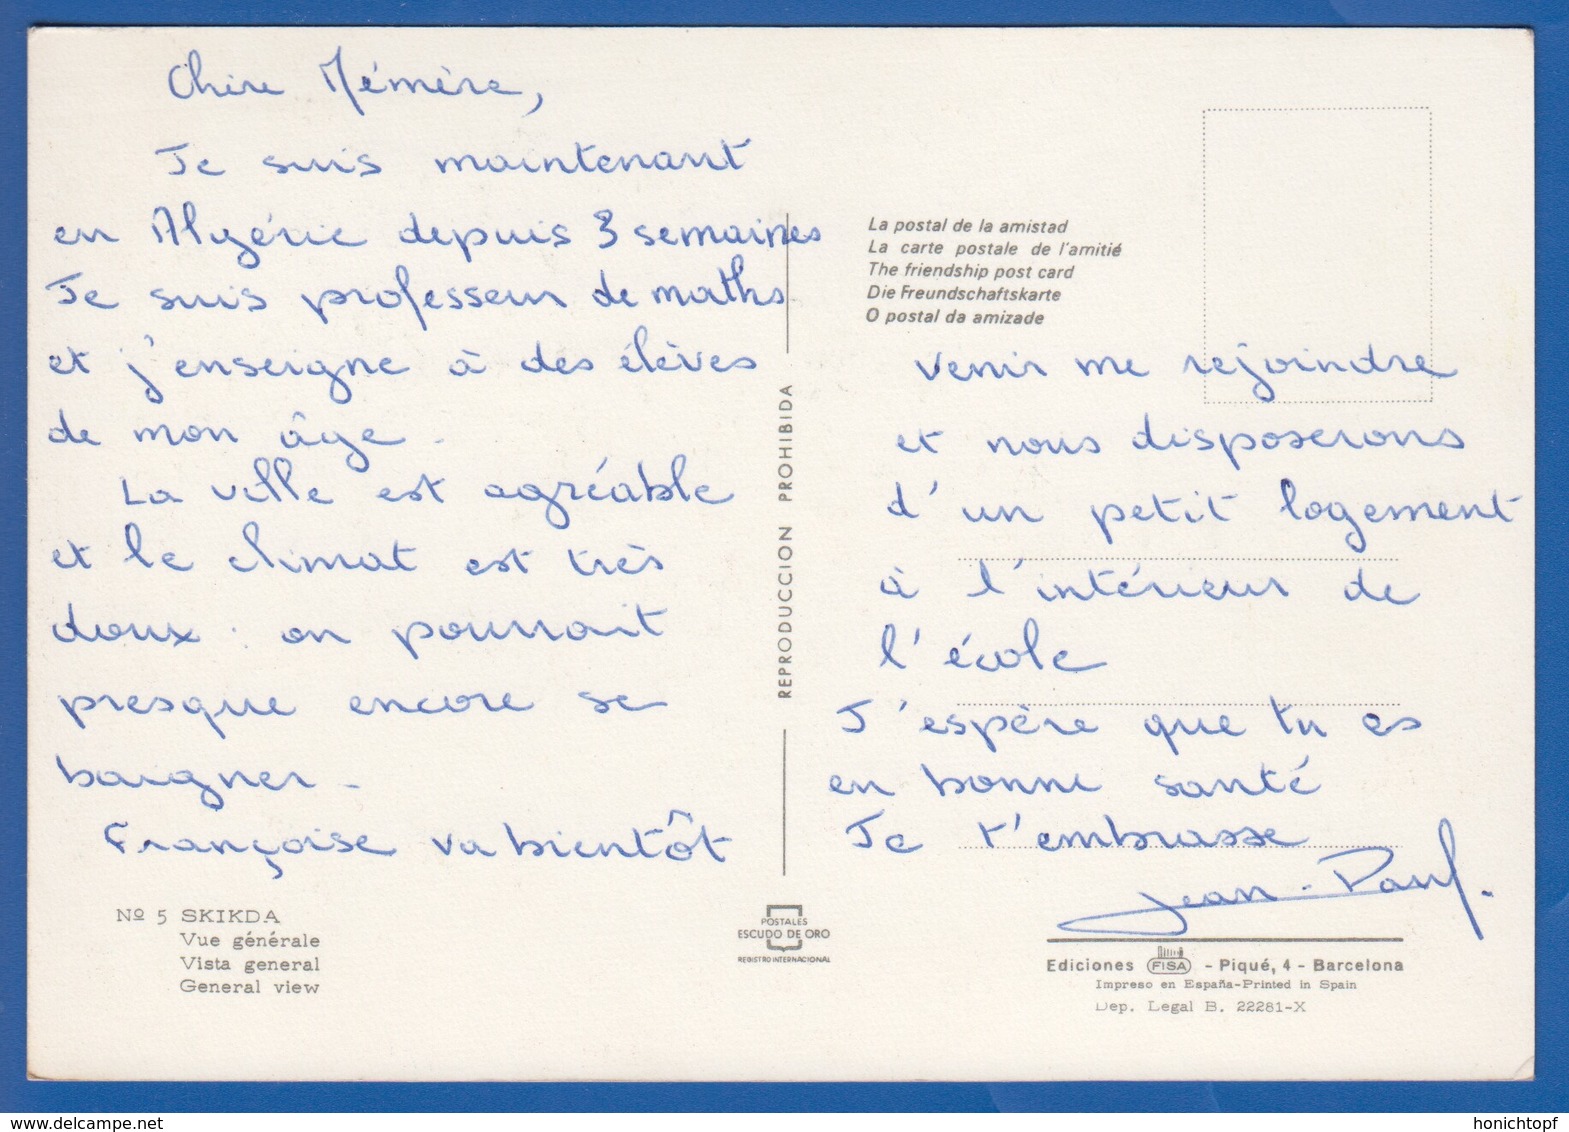 Chère Mémère,
Je suis maintenant
en Algérie depuis 3 semaines
Je suis professeur de maths
et j'enseigne à des élèves
de mon âge.
La ville est agréable
et le climat est très
doux. on pourrait
presque encore se
baigner.
Françoise va bientôt
Nº 5 SKIKDA
Vue générale
Vista general
General view
REPRODUCCION PROHIBIDA
POSTALES
ESCUDO DE ORO
REGISTRO INTERNACIONAL
La postal de la amistad
La carte postale de l'amitié
The friendship post card
Die Freundschaftskarte
O postal da amizade
venir me rejoindre
et nous disposerons
d'un petit logement
à l'intérieur de
l'école
J'espère que tu es
en bonne santé
Je t'embrasse
Jean-Paul.
Ediciones FISA - Piqué, 4 - Barcelona
Impreso en España-Printed in Spain
Dep. Legal B. 22281-X
delcampe.net
honichtopf